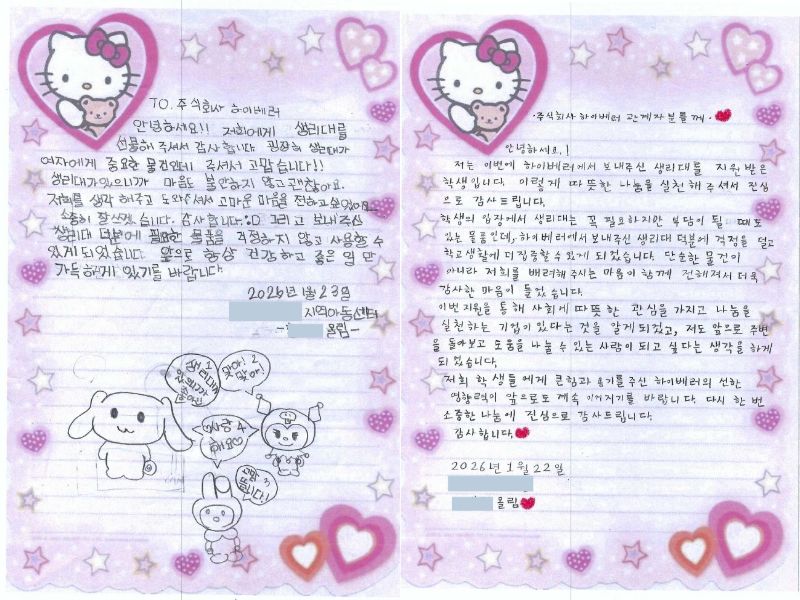 TO. 주식회사 하이베러
안녕하세요!! 저희에게 생리대를
선물해 주셔서 감사합니다 굉장히 생리대가
여자에게 중요한 물건인데 주셔서 고맙습니다!!
생리대가있으니까 마음도 불안하지 않고괜찮아요.
저희를 생각 해주고 도와주셔서 고마운 마음을 전하고싶었어요.
소중히 잘쓰겠습니다. 감사합니다.:D 그리고 보내주신
생리대 덕분에 필요한 물품을 걱정하지 않고 사용할 수
있게 되었습니다. 앞으로 항상 건강하고 좋은 일 만
가득하게 있기를 바랍니다.
2026년 1월 23일
지역아동센터
올림-
생리대
있으니까
좋아요!
1
맞아! 2
맞아!
사랑 4
해요
3
·주식회사 하이베러 관계자분들께·
안녕하세요.!
저는 이번에 하이베러에서 보내주신 생리대를 지원 받은
학생입니다. 이렇게 따뜻한 나눔을 실천해 주셔서 진심
으로 감사드립니다.
학생의 입장에서 생리대는 꼭 필요하지만 부담이 될 때도
있는 물품인데, 하이베러에서 보내주신 생리대 덕분에 걱정을 덜고
학교생활에 더 집중할 수 있게 되었습니다. 단순한 물건이
아니라 저희를 배려해 주시는 마음이 함께 전해져서 더욱
감사한 마음이 들었습니다.
이번 지원을 통해 사회에 따뜻한 관심을 가지고 나눔을
실천하는 기업이 있다는 것을 알게 되었고, 저도 앞으로 주변
을 돌아보고 도움을 나눌 수 있는 사람이 되고 싶다는 생각을 하게
되었습니다.
저희 학생들에게 큰힘과 용기를주신 하이베러의 선한
영향력이 앞으로도 계속 이어지기를 바랍니다. 다시 한번
소중한 나눔에 진심으로 감사드립니다.
감사합니다.
2026년 1월 22일
올림